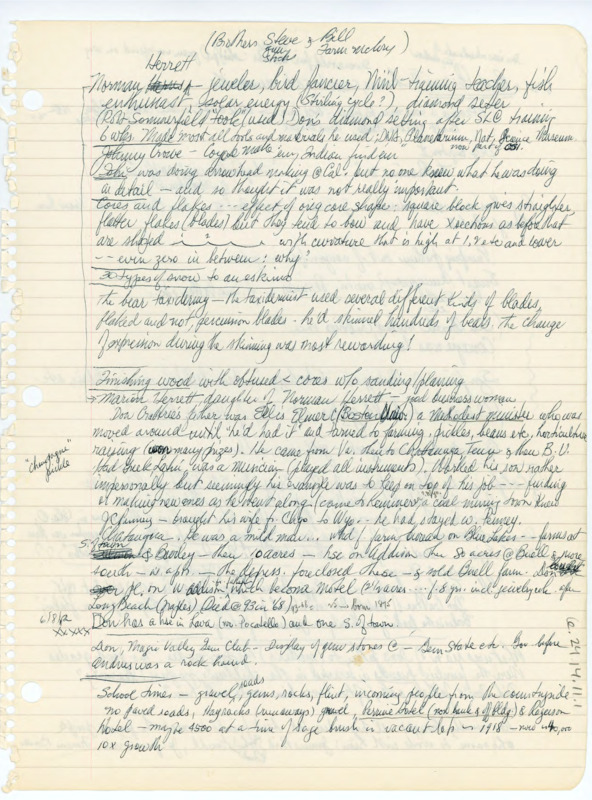 (Brothers Steve & Bill
Gun Stock Farm &
Herrett
Norman - jeweler, bird fancier, teacher, fish
enthusiast, solar energy (Stirling Cycle?), diamond setter
(Rob't Sommerfield "tools") (used Don's diamond setting after SLC training
6 wks. Made most all tools and materials he used; Planetarium, Nat. Science Museum
now part of CSI.
Johnny Crowe -
John was doing arrowhead making @ Cal. but no one knew what he was doing
in detail - and so thought it was not really important.
Cores and flakes --- effect of orig core shape: square block gives straighter,
flatter flakes (blades) but they tend to bow and have xsections as before that
are shaped with curvature that is high at 1, and lower
-- even zero in between; why?
30 types of snow to an eskimo
The bear taxidermy - the taxidermist used several different kinds of blades,
flaked and not, percussion blades - he'd skinned hundreds of bears, the change
of expression during the skinning was most rewarding!
Finishing wood with obtuse < cores w/o sanding/planing
→ Marion Herrett, daughter of Norman Herrett - good business woman
Don Crabtree's father was Ellis Elmer C (Boston Univ.) a Methodist minister who was
moved around until "he'd had it" and turned to farming, pickles, beans etc, horticulture,
raising (won many prizes). He came from Va. then to Chattanooga, Tenn & then B.U.
had Greek Latin, was a musician (played all instruments). Worked his son rather
impersonally but seemingly his example was to keep on top of his job --- finding
or making new ones as he went along. (came to Kemmerer a coal mining town knew
JC Penney - brought his wife fr to Wyo. - he had stayed w. Penney.
He was a mild man... farm north on Blue Lakes -- farms at
S. of town & Burley - then 10 acres - hse on Addison then 80 acres @ Buell & more
south - w apts - the depress. foreclosed these - & sold Buell farm. Don bought
pl. on W addison which became Motel (2½ acres --- f. 8 yrs. incl. jewelry etc. after
Long Beach (fifties) Died @ 93 in '68
"Champagne"
6/8/82
xxxxx
Don has a hse in Lava (nr. Pocatello) and one S. of town.
Don, Magic Valley Gem Club - Display of gem stones @ - Gem State etc. Gov before
Andrus was a rock hound.
School Times - gravel roads, guns, rocks, flint, incoming people from the countryside -
no paved roads, Hayracks (runaways) Perrine Hotel (now bank & off bldg) & Rogerson
Hotel - maybe 4500 at a time of sage brush in vacant lots in 1918 - now
10x growth
c. 24.14.11.1